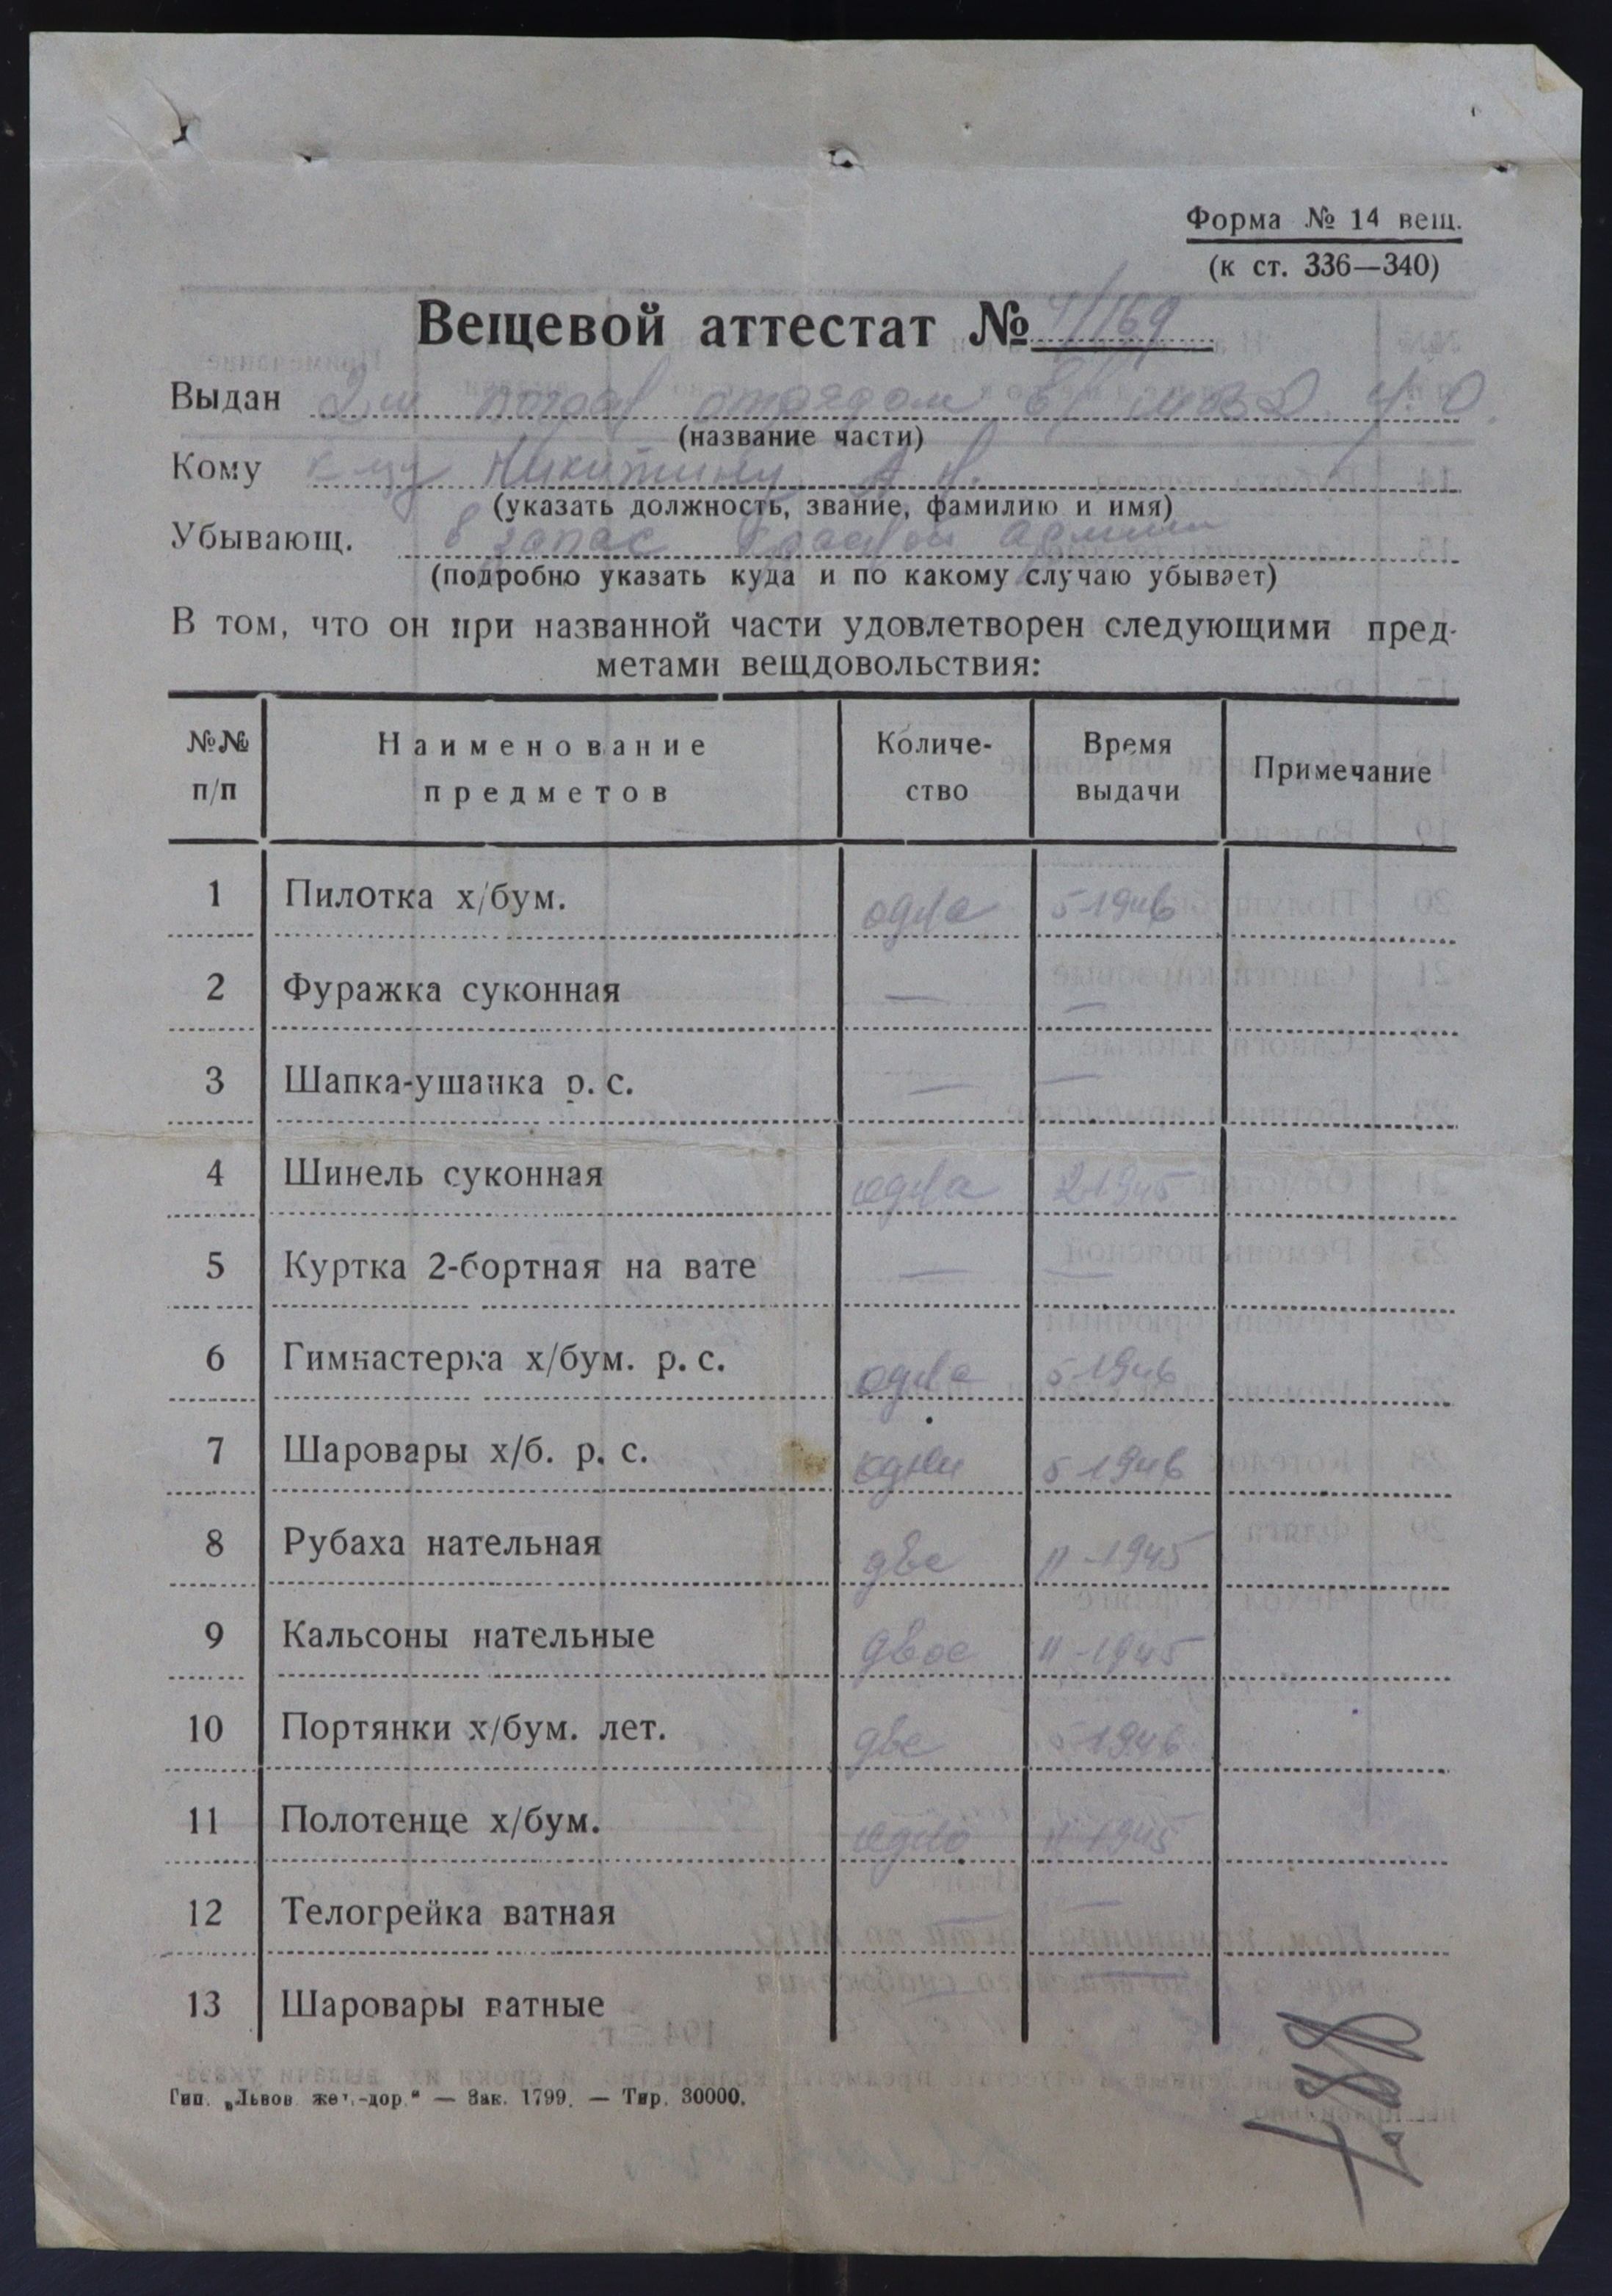 Форма № 14 вещ.
(к ст. 336—340)
Вещевой аттестат № 4/169
Выдан 2м погран отрядом
(название части)
Кому Никитину А. Н.
(указать должность, звание, фамилию и имя)
Убывающ. в запас Красной Армии
(подробно указать куда и по какому случаю убывает)
В том, что он при названной части удовлетворен следующими пред-
метами вещдовольствия:
№№ п/п Наименование предметов Количе-ство Время выдачи Примечание
1 Пилотка х/бум. одна 5-1946
2 Фуражка суконная — —
3 Шапка-ушанка р. с. — —
4 Шинель суконная одна 2-1945
5 Куртка 2-бортная на вате — —
6 Гимнастерка х/бум. р. с. одна 5 1946
7 Шаровары х/б. р. с. одни 5 1946
8 Рубаха нательная две 11-1945
9 Кальсоны нательные двое 11-1945
10 Портянки х/бум. лет. две 5 1946
11 Полотенце х/бум. одно 11 1945
12 Телогрейка ватная — —
13 Шаровары ватные — —
Тип. „Львов. жел.-дор.“ — Зак. 1799. — Тир. 30000.